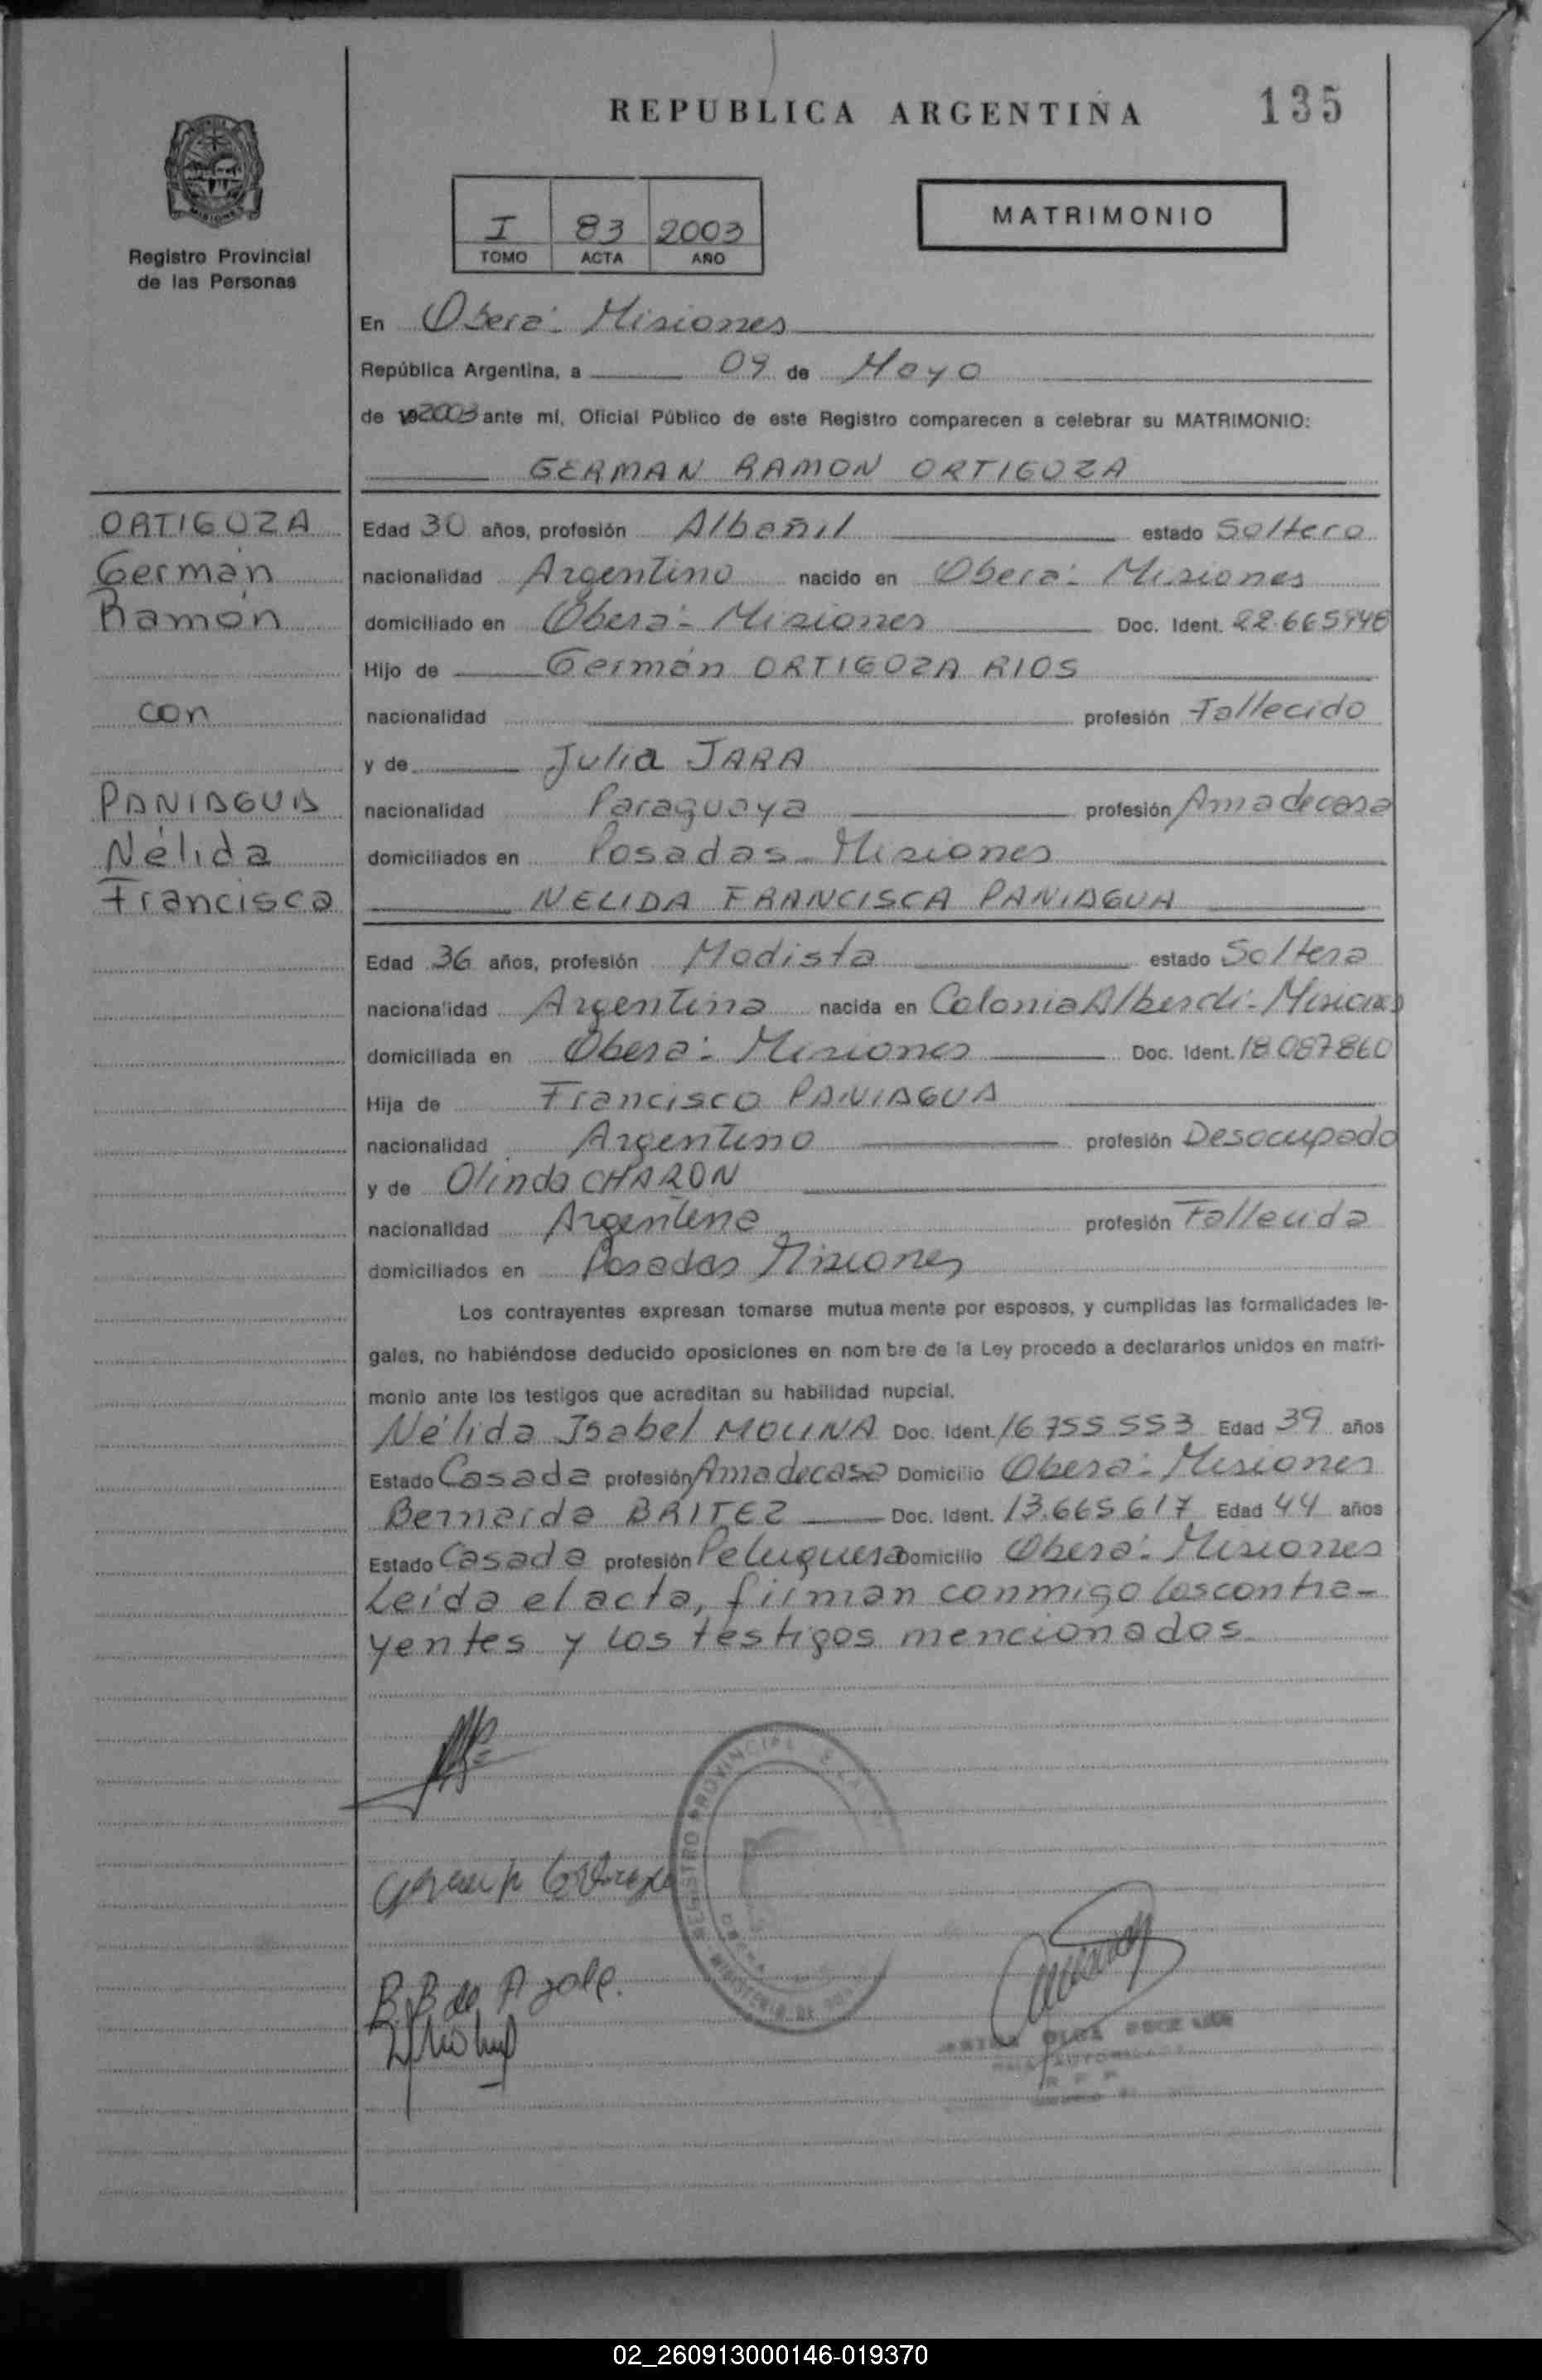 REPUBLICA ARGENTINA
135
Registro Provincial
de las Personas
I 83 2003
TOMO ACTA AÑO
MATRIMONIO
En Oberá - Misiones
República Argentina, a 09 de Mayo
de 2003 ante mí, Oficial Público de este Registro comparecen a celebrar su MATRIMONIO:
GERMAN RAMON ORTIGOZA
ORTIGOZA
Germán
Ramón
con
PANIAGUA
Nélida
Francisca
Edad 30 años, profesión Albañil estado Soltero
nacionalidad Argentino nacido en Oberá - Misiones
domiciliado en Oberá - Misiones Doc. Ident.
Hijo de Germán ORTIGOZA RIOS
nacionalidad profesión Fallecido
y de Julia JARA
nacionalidad Paraguaya profesión Ama de casa
domiciliados en Posadas - Misiones
NELIDA FRANCISCA PANIAGUA
Edad 36 años, profesión Modista estado Soltera
nacionalidad Argentina nacida en Colonia Alberdi - Misiones
domiciliada en Oberá - Misiones Doc. Ident. 18.087860
Hija de Francisco PANIAGUA
nacionalidad Argentino profesión Desocupado
y de Olinda CHARON
nacionalidad Argentina profesión Fallecida
domiciliados en Posadas Misiones
Los contrayentes expresan tomarse mutua mente por esposos, y cumplidas las formalidades le-
gales, no habiéndose deducido oposiciones en nom bre de la Ley procedo a declararlos unidos en matri-
monio ante los testigos que acreditan su habilidad nupcial.
Nélida Isabel MOLINA Doc. Ident. 16.755.553 Edad 39 años
Estado Casada profesión Ama de casa Domicilio Oberá - Misiones
Bernarda BRITEZ Doc. Ident. 13.665.617 Edad 44 años
Estado Casada profesión Peluquera Domicilio Oberá - Misiones
Leída el acta, firman conmigo los contra-
yentes y los testigos mencionados.
REGISTRO PROVINCIAL
MINISTERIO DE
02_260913000146-019370